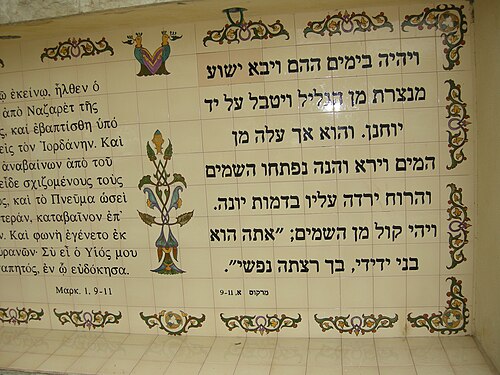 ἐκείνῳ, ἦλθεν ὁ
ἀπὸ Ναζαρὲτ τῆς
ς, καὶ ἐβαπτίσθη ὑπὸ
εἰς τὸν Ἰορδάνην. Καὶ
ἀναβαίνων ἀπὸ τοῦ
εἶδε σχιζομένους τοὺς
ς, καὶ τὸ Πνεῦμα ὡσεὶ
τεράν, καταβαῖνον ἐπ᾽
ν. Καὶ φωνὴ ἐγένετο ἐκ
ὐρανῶν· Σὺ εἶ ὁ Υἱός μου
απητός, ἐν ᾧ εὐδόκησα.
Μαρκ. 1, 9-11
ויהיה בימים ההם ויבא ישוע
מנצרת מן הגליל ויטבל על יד
יוחנן. והוא אך עלה מן
המים וירא והנה נפתחו השמים
והרוח ירדה עליו בדמות יונה.
ויהי קול מן השמים; "אתה הוא
בני ידידי, בך רצתה נפשי".
מרקוס א, 9-11